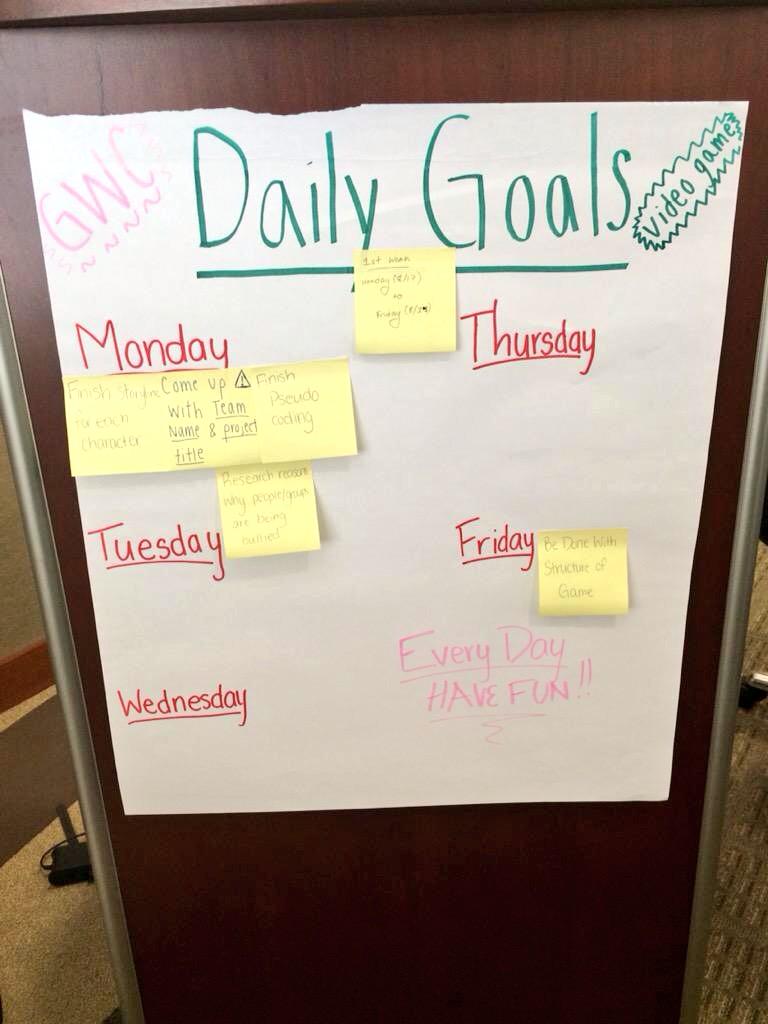 GWC
Daily Goals
video game
1st week
Monday (8/17)
to
Friday
Monday
Finish Storyline
for each
character
Come up
with Team
Name & project
title
Finish
Pseudo
coding
Tuesday
Research reasons
why people/groups
are being
bullied
Wednesday
Thursday
Friday
Be Done With
Structure of
Game
Every Day
HAVE FUN!!